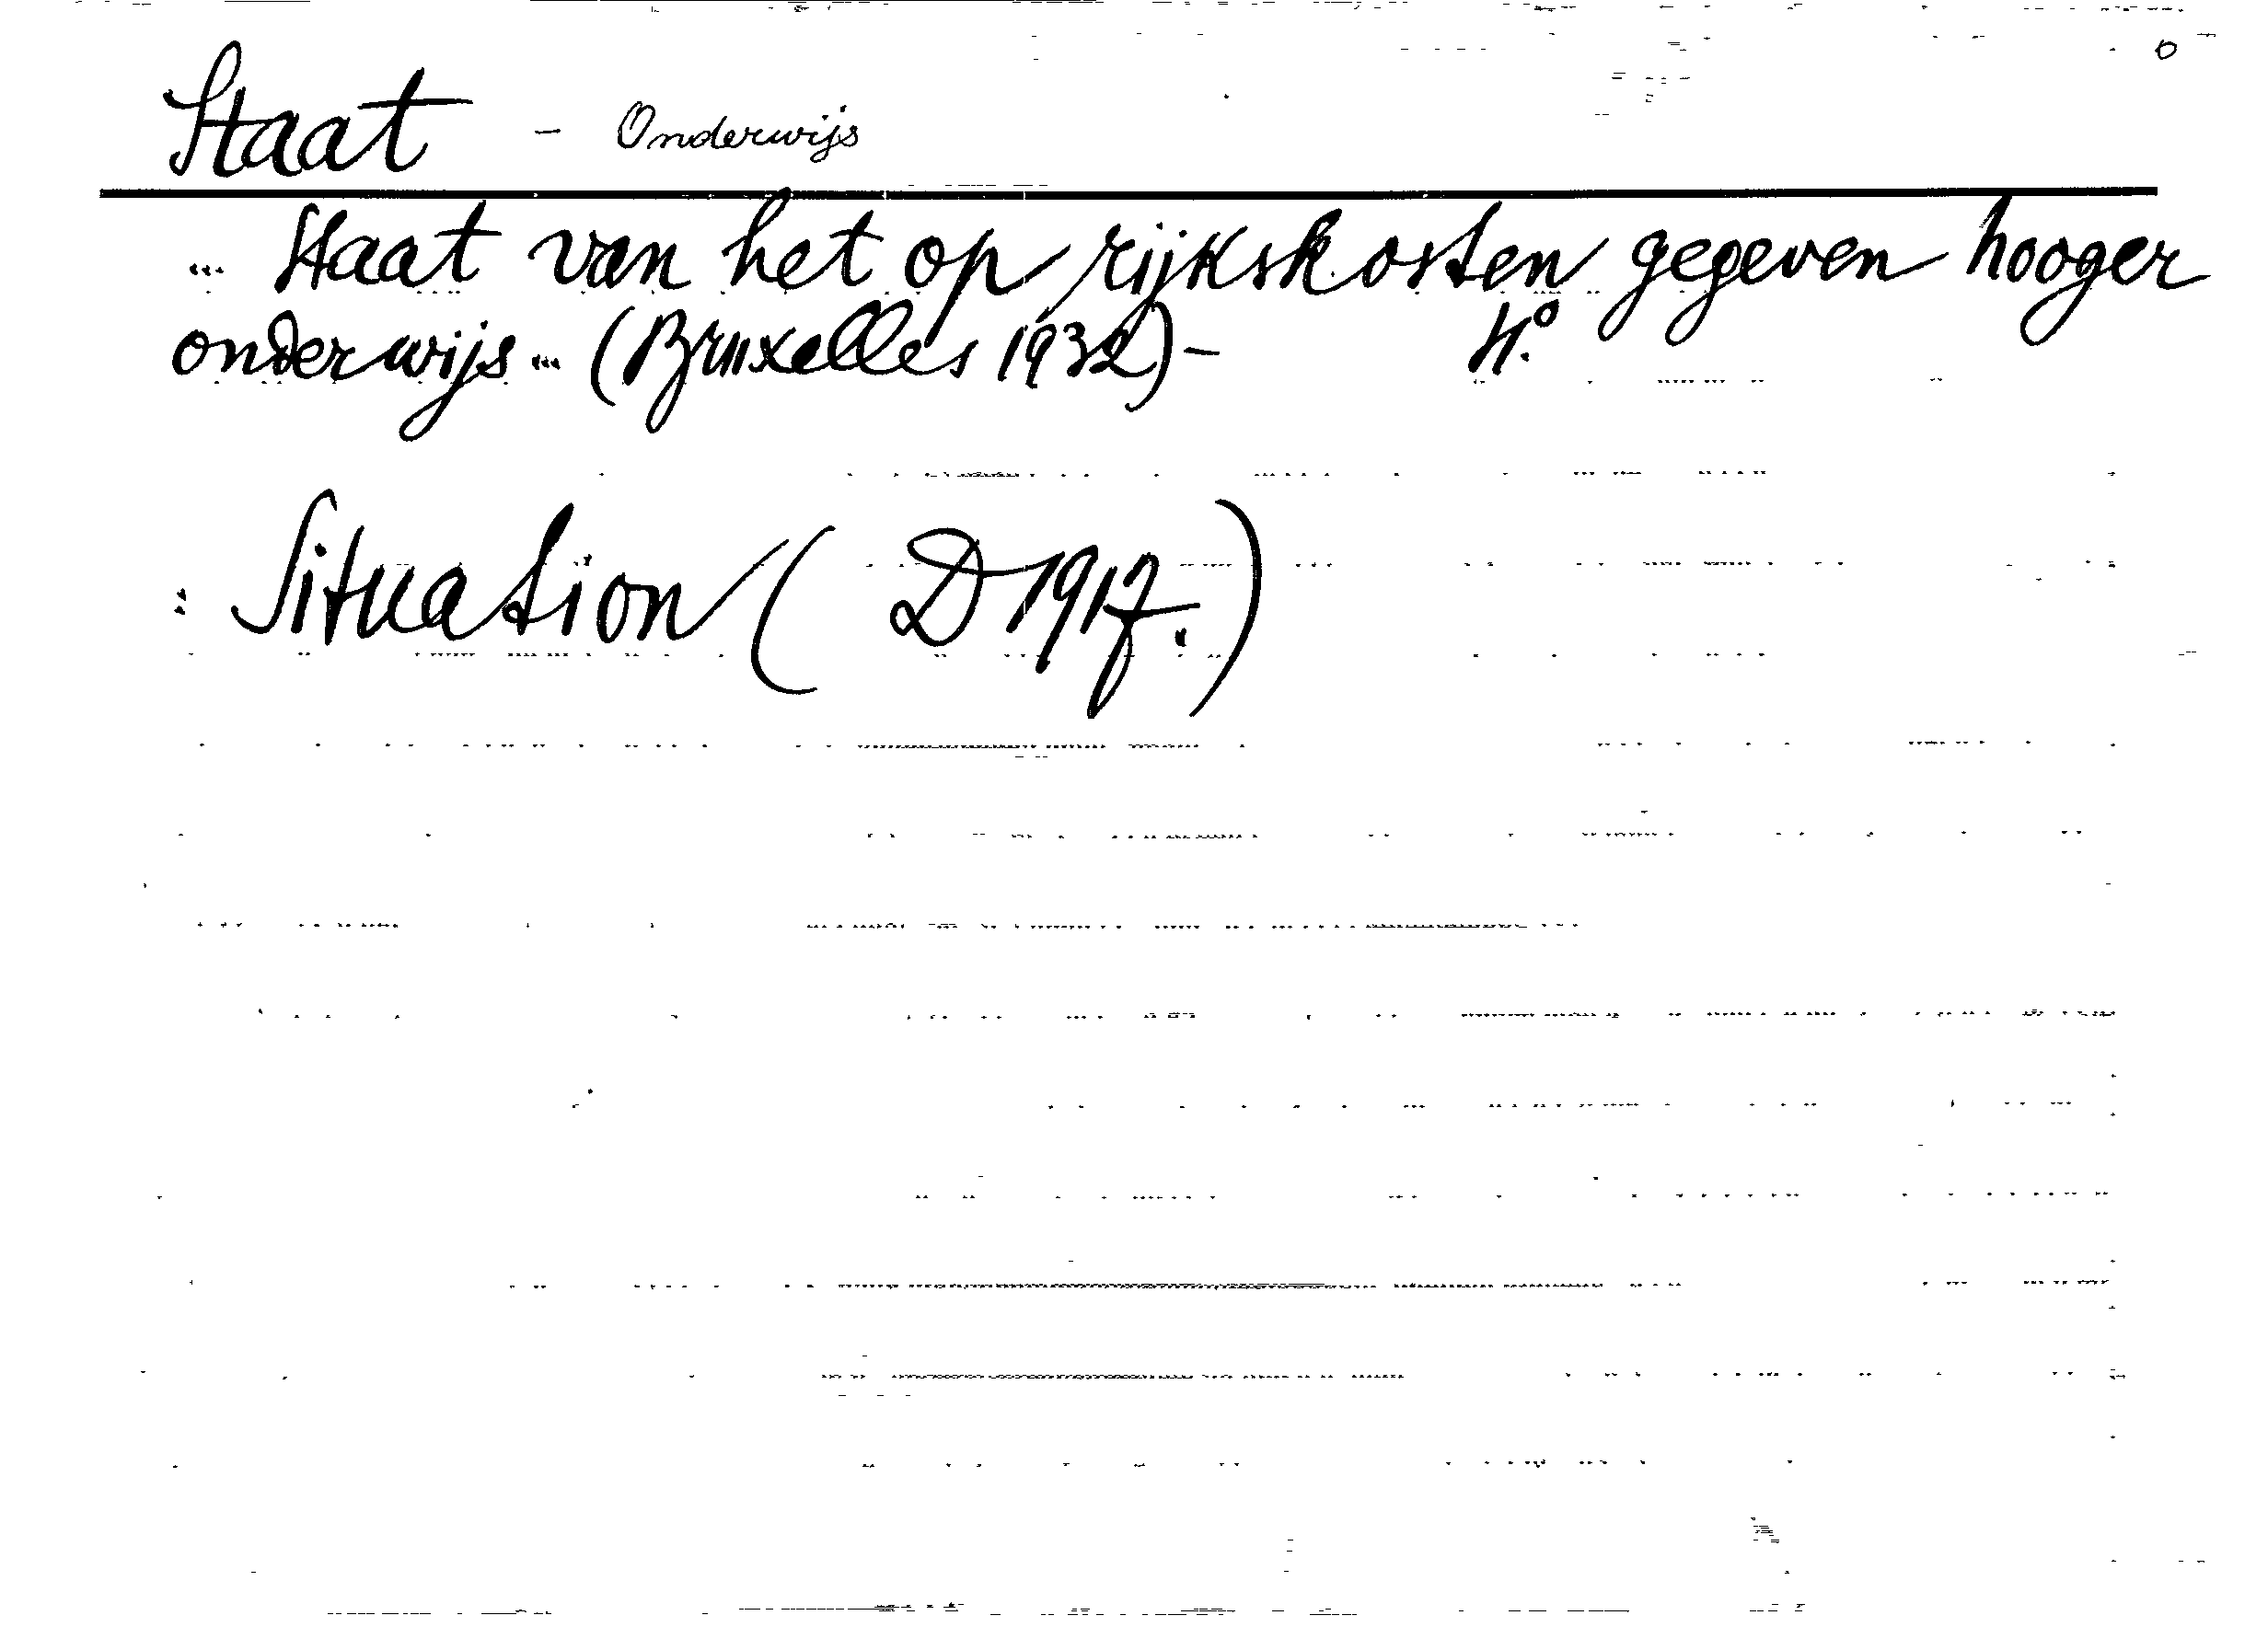 Staat - Onderwijs
... Staat van het op rijkskosten gegeven hooger
onderwijs ... (Bruxelles 1932) - 4.º
: Situation ( D 1917.)